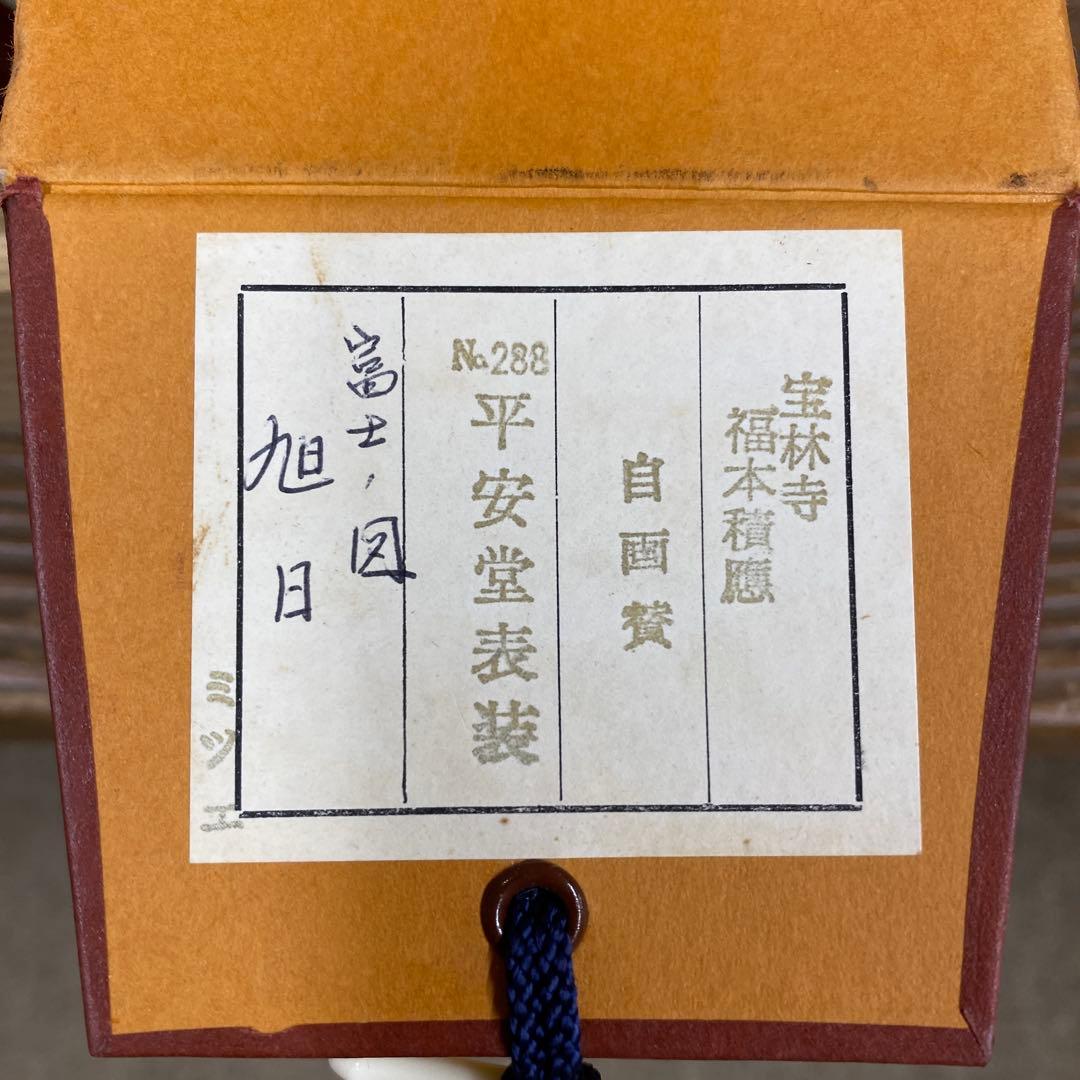 宝林寺
福本積應
自画賛
No.288
平安堂表装
富士ノ図
旭日
ミツエ